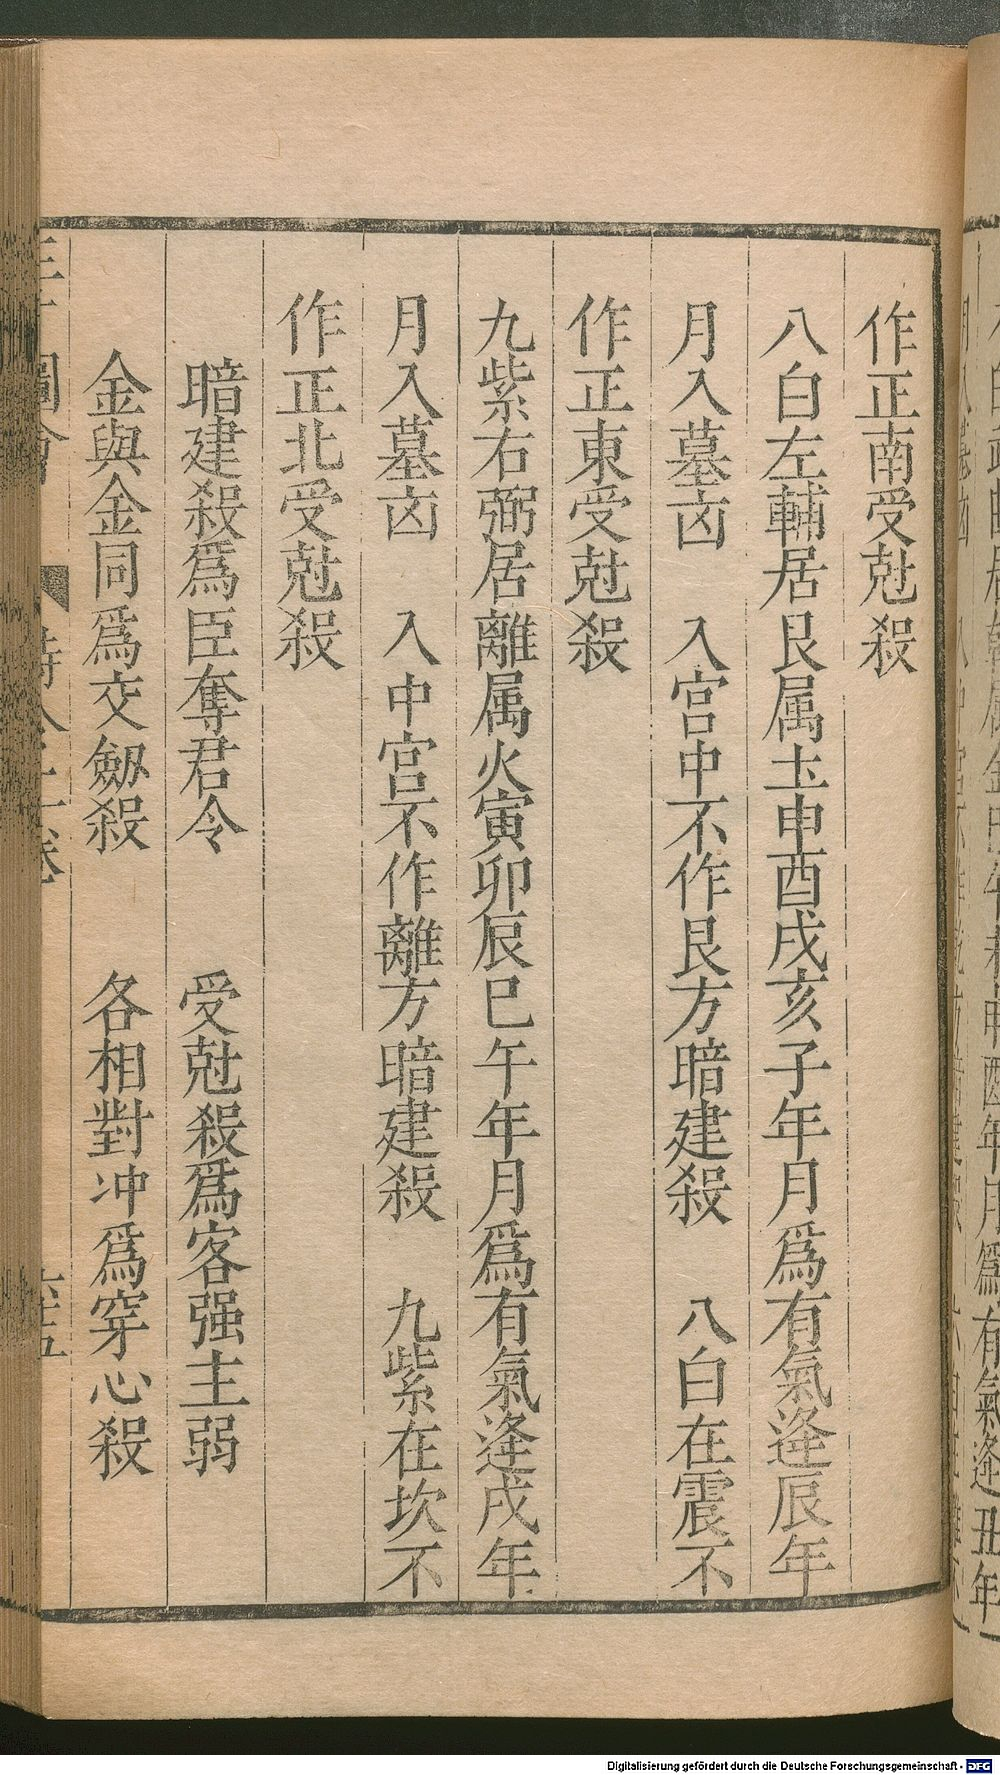 作正南受尅殺
八白左輔居艮属土申酉戌亥子年月爲有氣逢辰年
月入墓凶　入宫中不作艮方暗建殺　八白在震不
作正東受尅殺
九紫右弼居離属火寅卯辰巳午年月爲有氣逢戌年
月入墓凶　入中宫不作離方暗建殺　九紫在坎不
作正北受尅殺
暗建殺爲臣奪君令　受尅殺爲客强主弱
金與金同爲交劔殺　各相對冲爲穿心殺
Digitalisierung gefördert durch die Deutsche Forschungsgemeinschaft - DFG